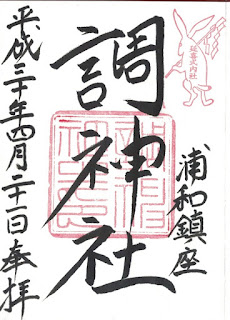 延喜式内社
浦和鎮座
調神社
平成三十年四月二十一日奉拝